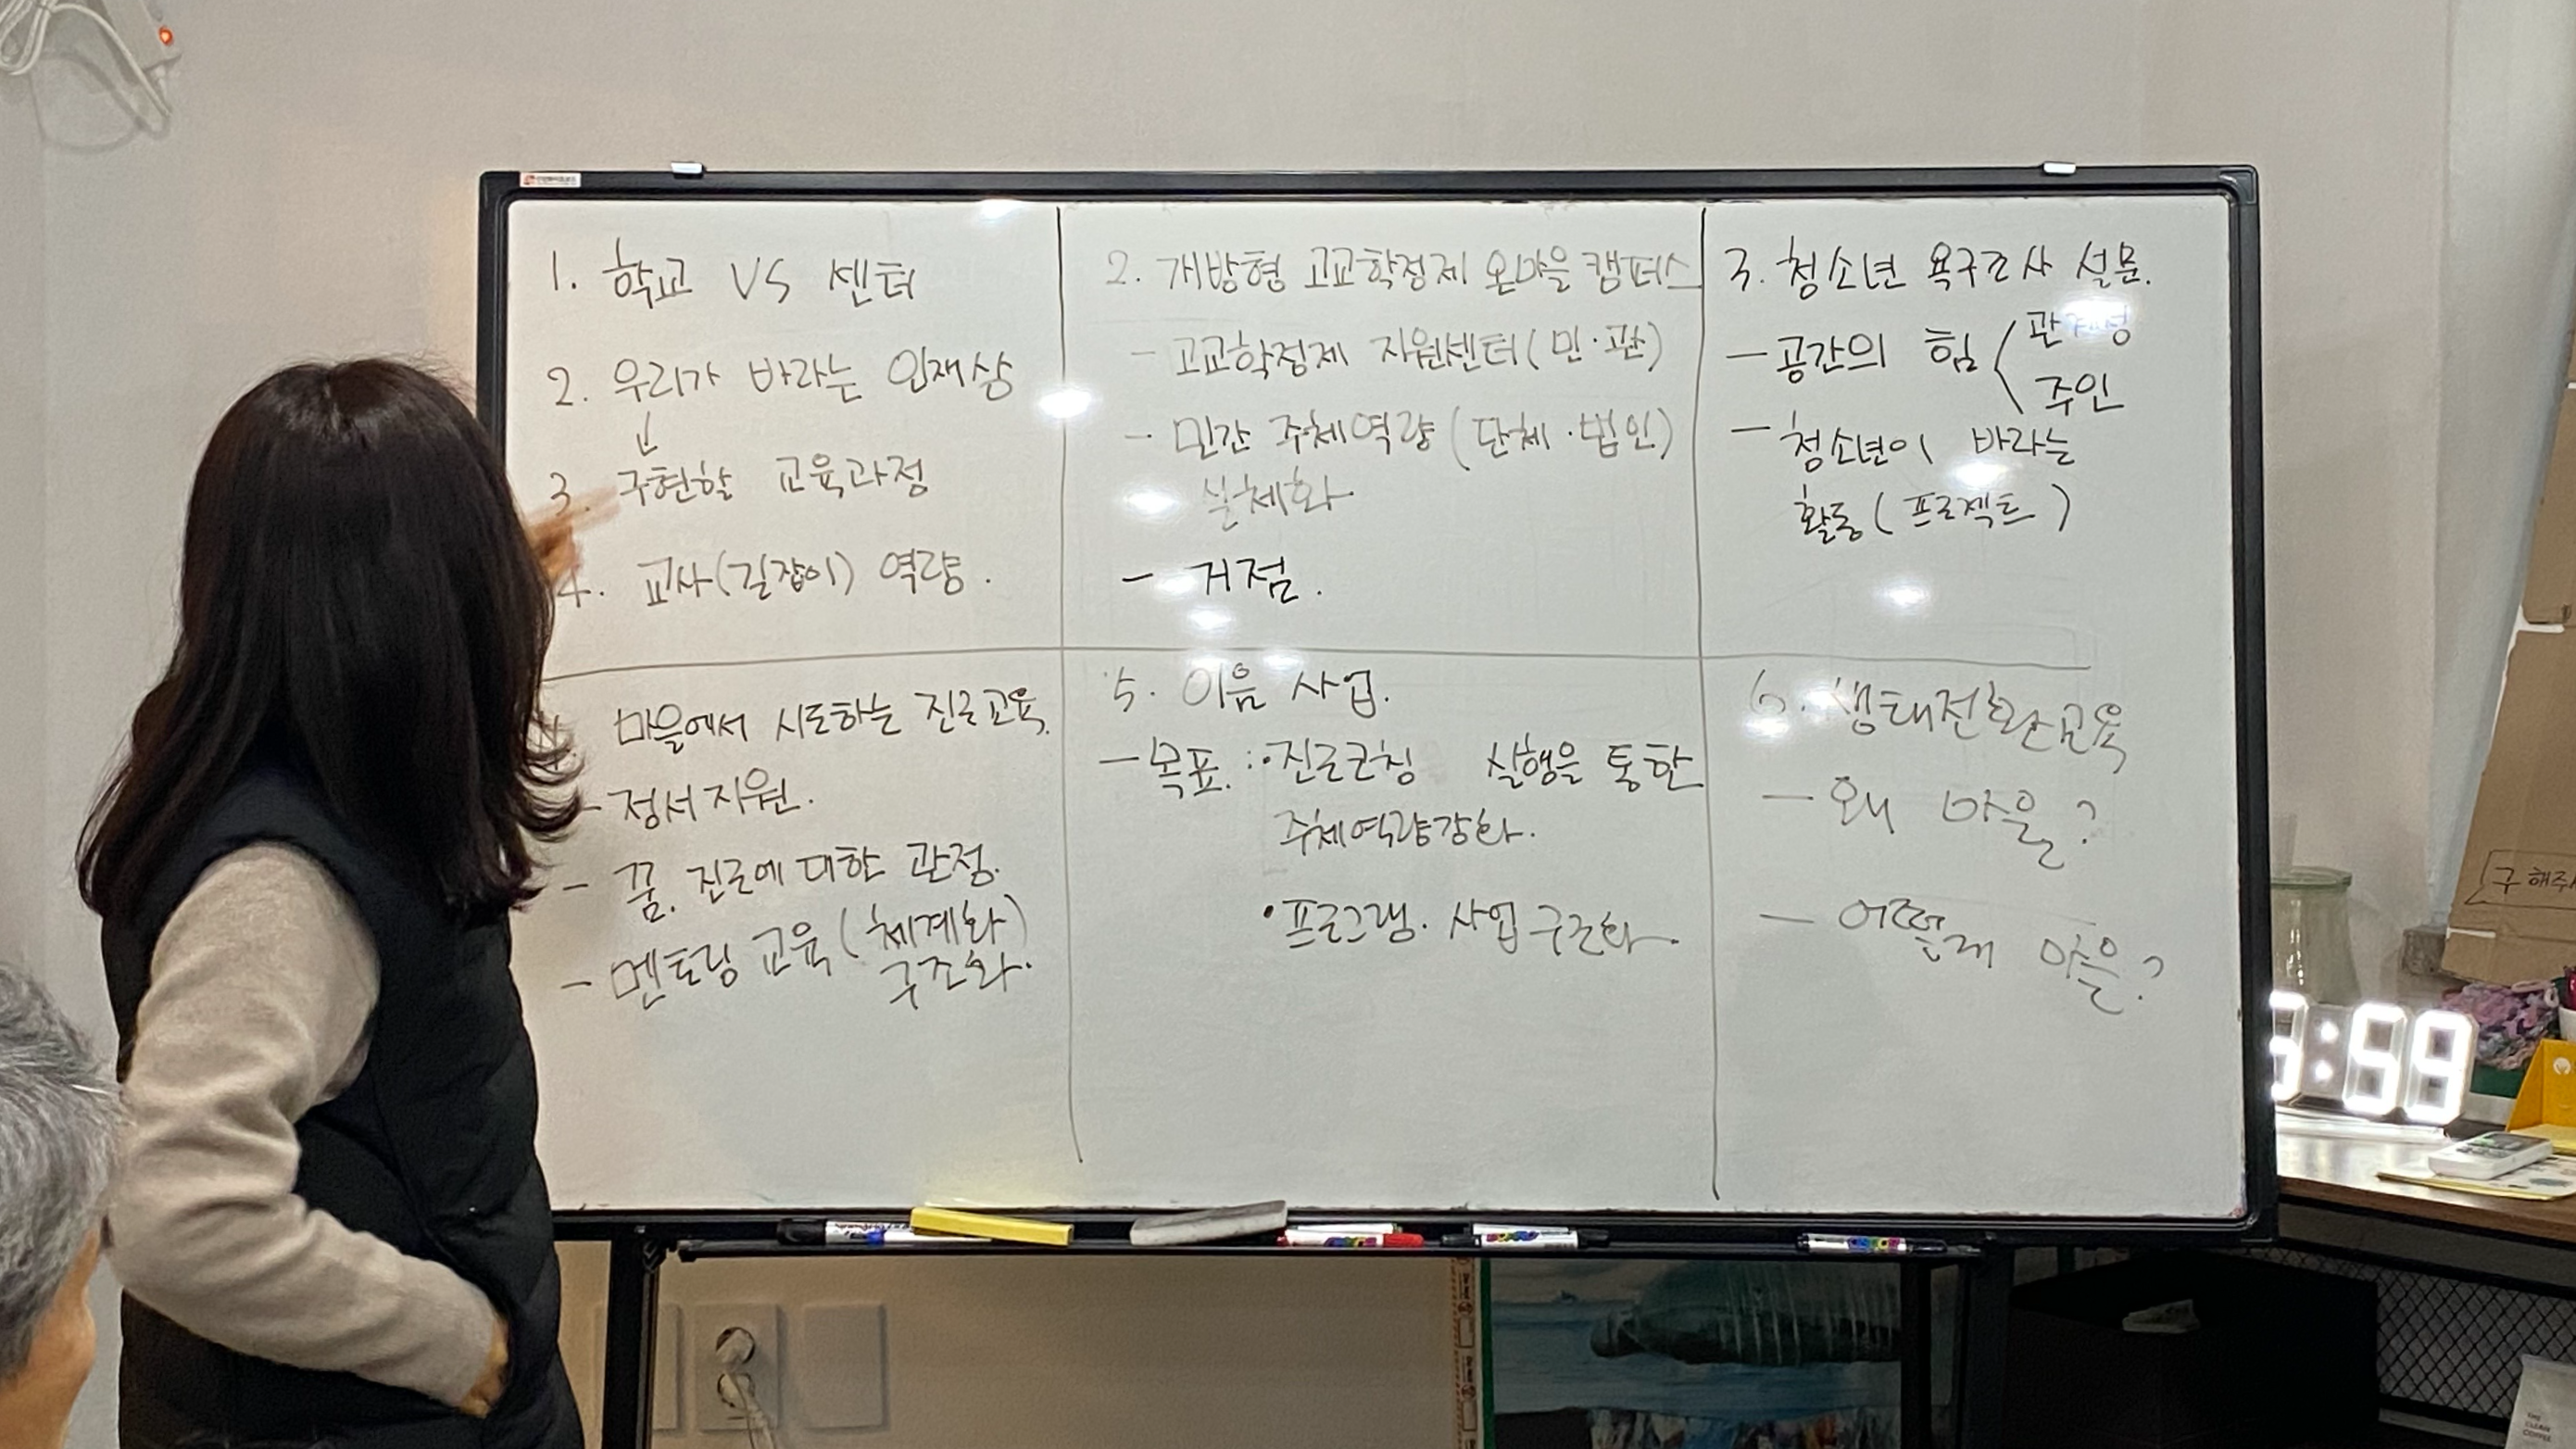 1. 학교 VS 센터
2. 우리가 바라는 인재상
↓
3. 구현할 교육과정
4. 교사(길잡이) 역량.
2. 개방형 고교학점제 온마을 캠퍼스
- 고교학점제 지원센터(민·관)
- 민간 주체역량(단체·법인)
실체화
- 거점.
3. 청소년 욕구조사 설문.
- 공간의 힘 < 관계성
주인
- 청소년이 바라는
활동(프로젝트)
4. 마을에서 시도하는 진로교육.
- 정서지원.
- 꿈. 진로에 대한 관점.
- 멘토링 교육(체계화)
구조화.
5. 이음 사업.
- 목표: ·진로코칭 실행을 통한
주체역량강화.
·프로그램. 사업구조화.
6. 생태전환교육
- 왜 마을?
- 어떻게 마을?
구해주
:59
THE
CLEAN
COFFEE